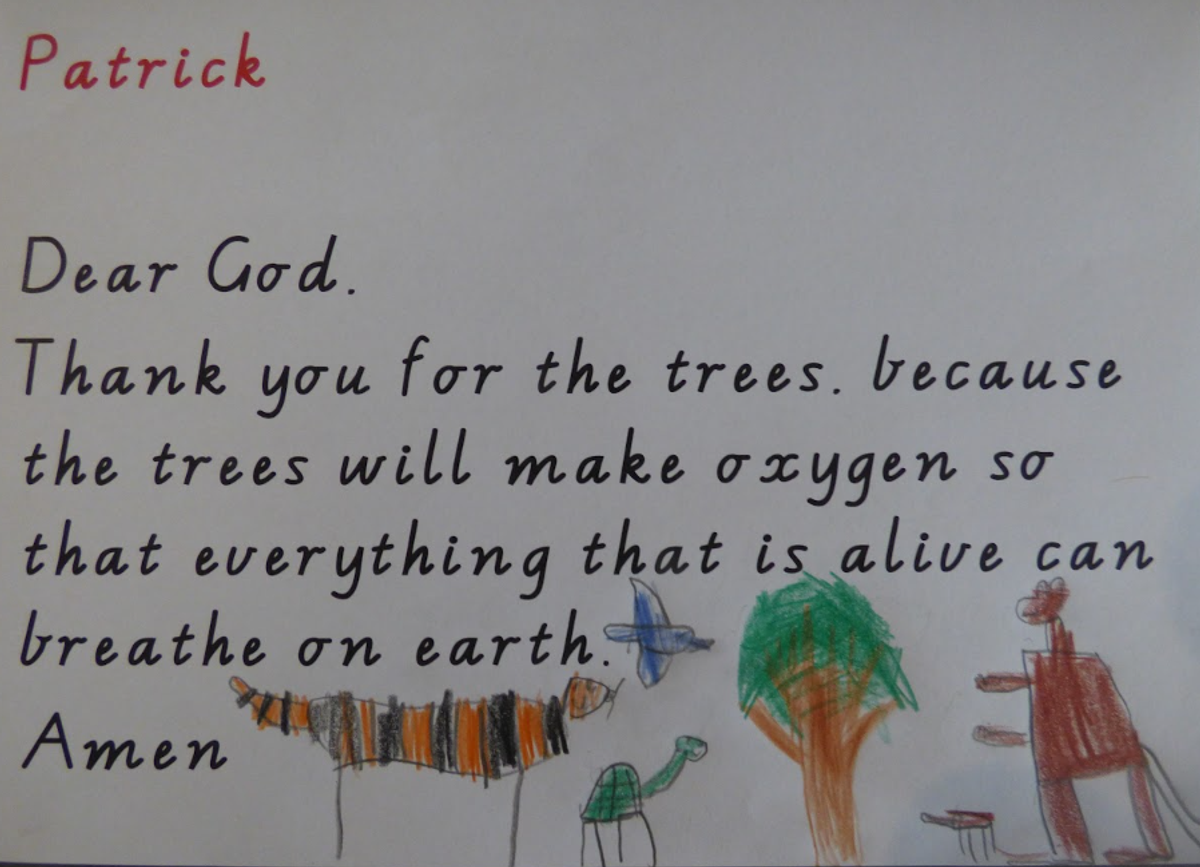 Patrick
Dear God.
Thank you for the trees. because
the trees will make oxygen so
that everything that is alive can
breathe on earth.
Amen